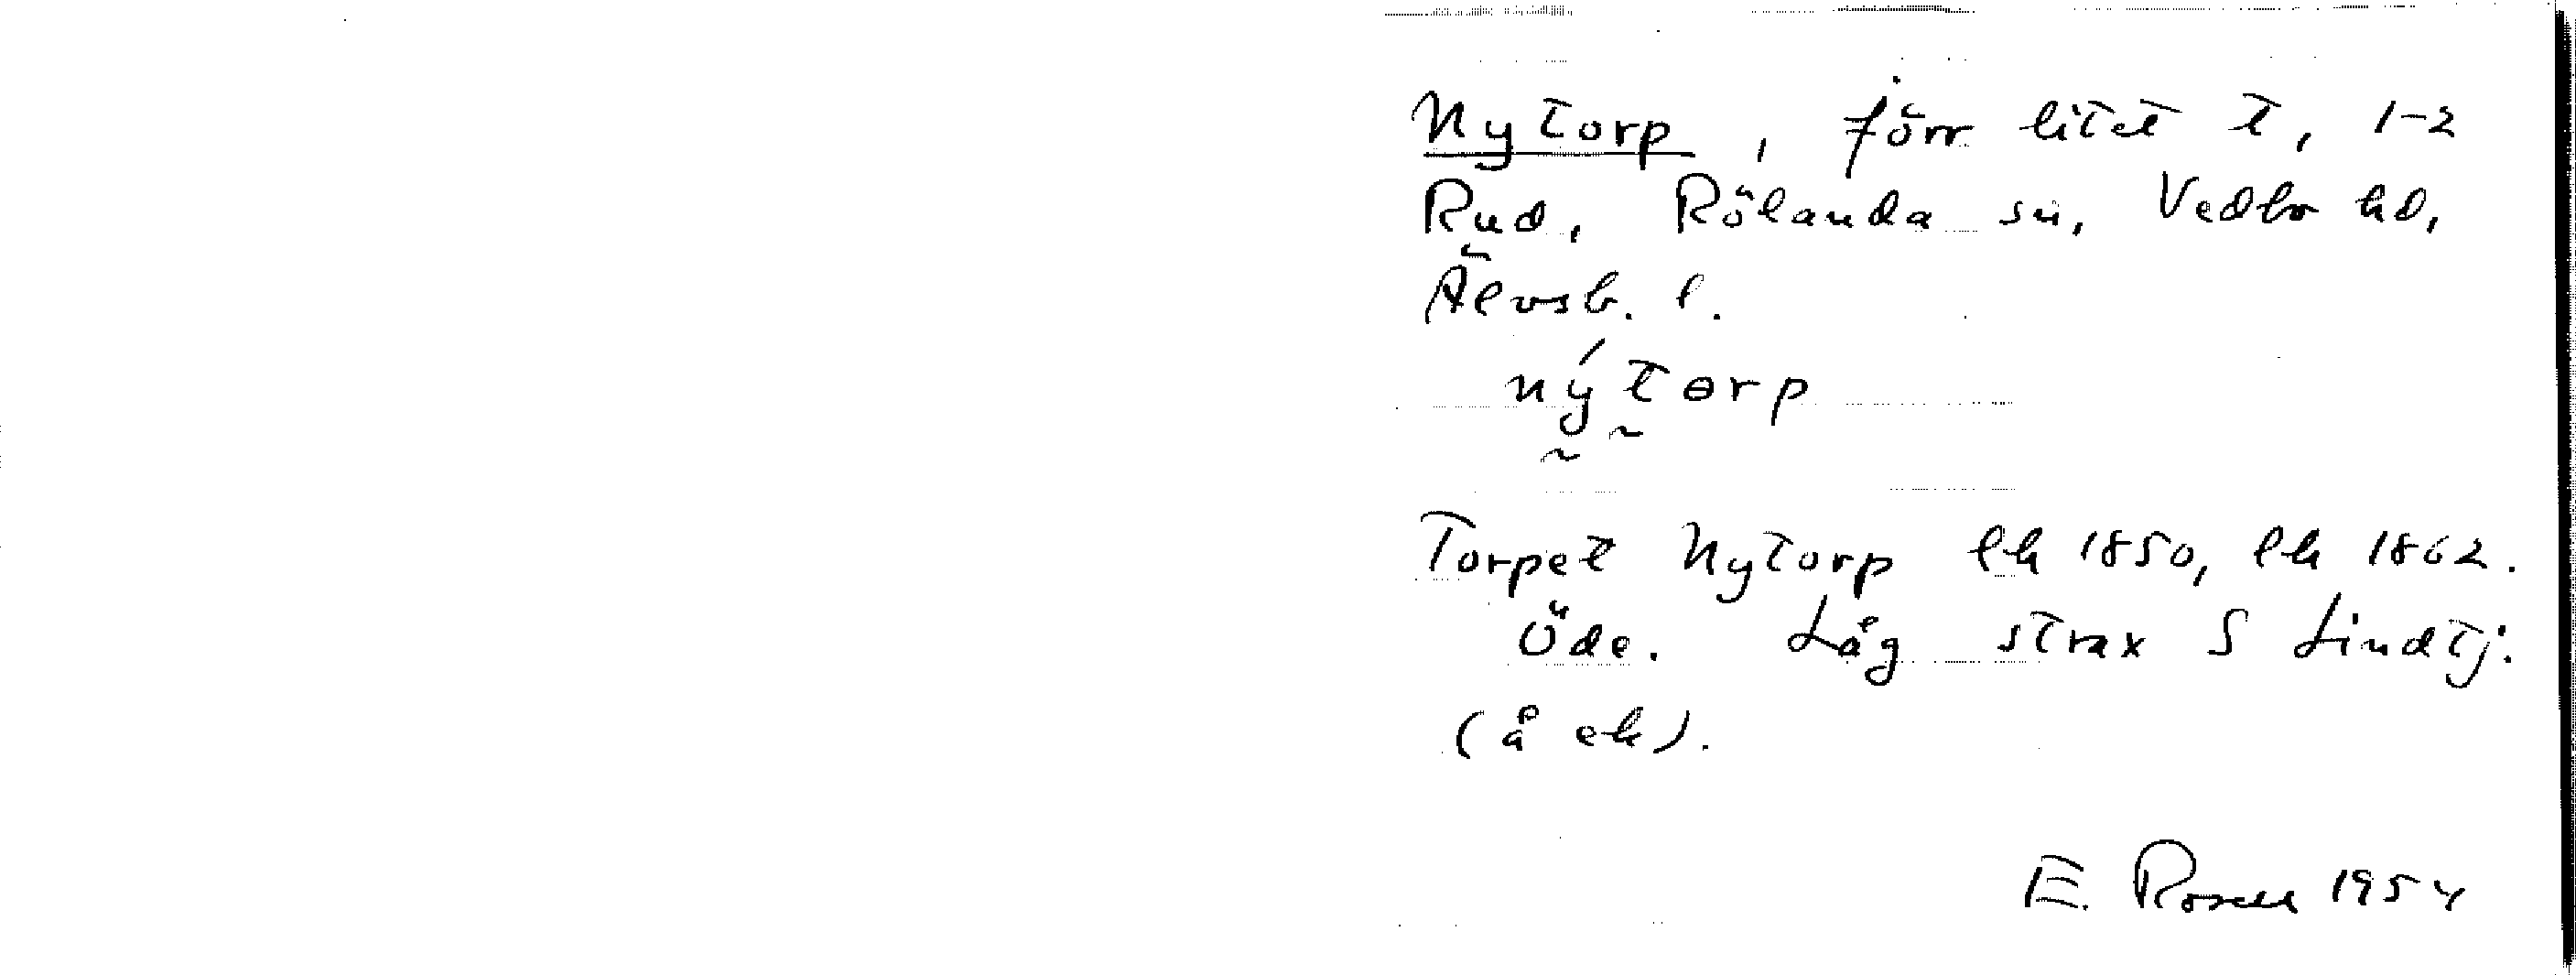 Nytorp, förr litet t, 1-2
Rud, Rölanda sn, Vedbo hd,
Älvsb. l.
nýtorp
Torpet Nytorp lh 1850, lh 1862.
Öde. Låg strax S Lindtj.
(å ek).
E. Rosell 1954